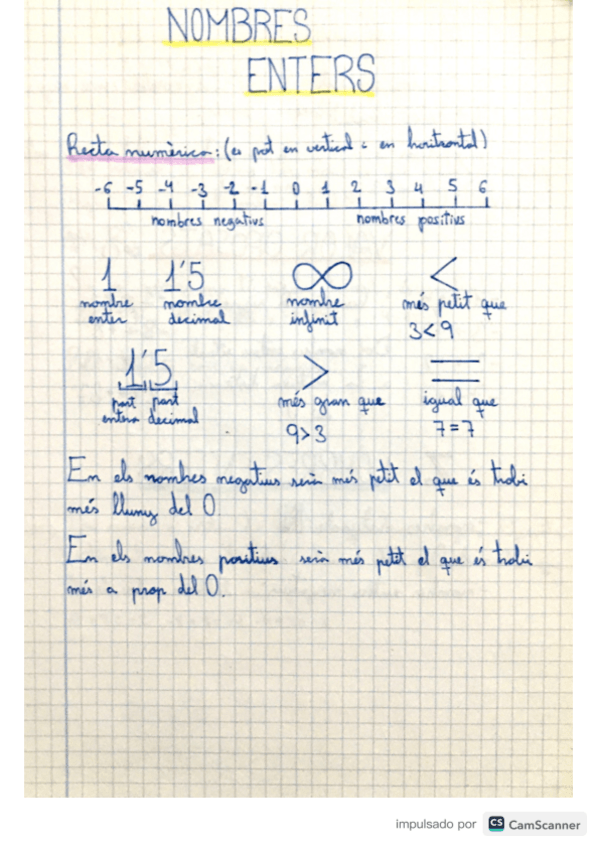 NOMBRES
ENTERS
Recta numèrica: (es pot en vertical i en horitzontal)
-6 -5 -4 -3 -2 -1 0 1 2 3 4 5 6
nombres negatius nombres positius
1 1'5 ∞ <
nombre nombre nombre més petit que
enter decimal infinit 3<9
1'5 > =
part part més gran que igual que
entera decimal 9>3 7=7
En els nombres negatius serà més petit el que és trobi
més lluny del 0.
En els nombres positius serà més petit el que és trobi
més a prop del 0.
impulsado por CS CamScanner